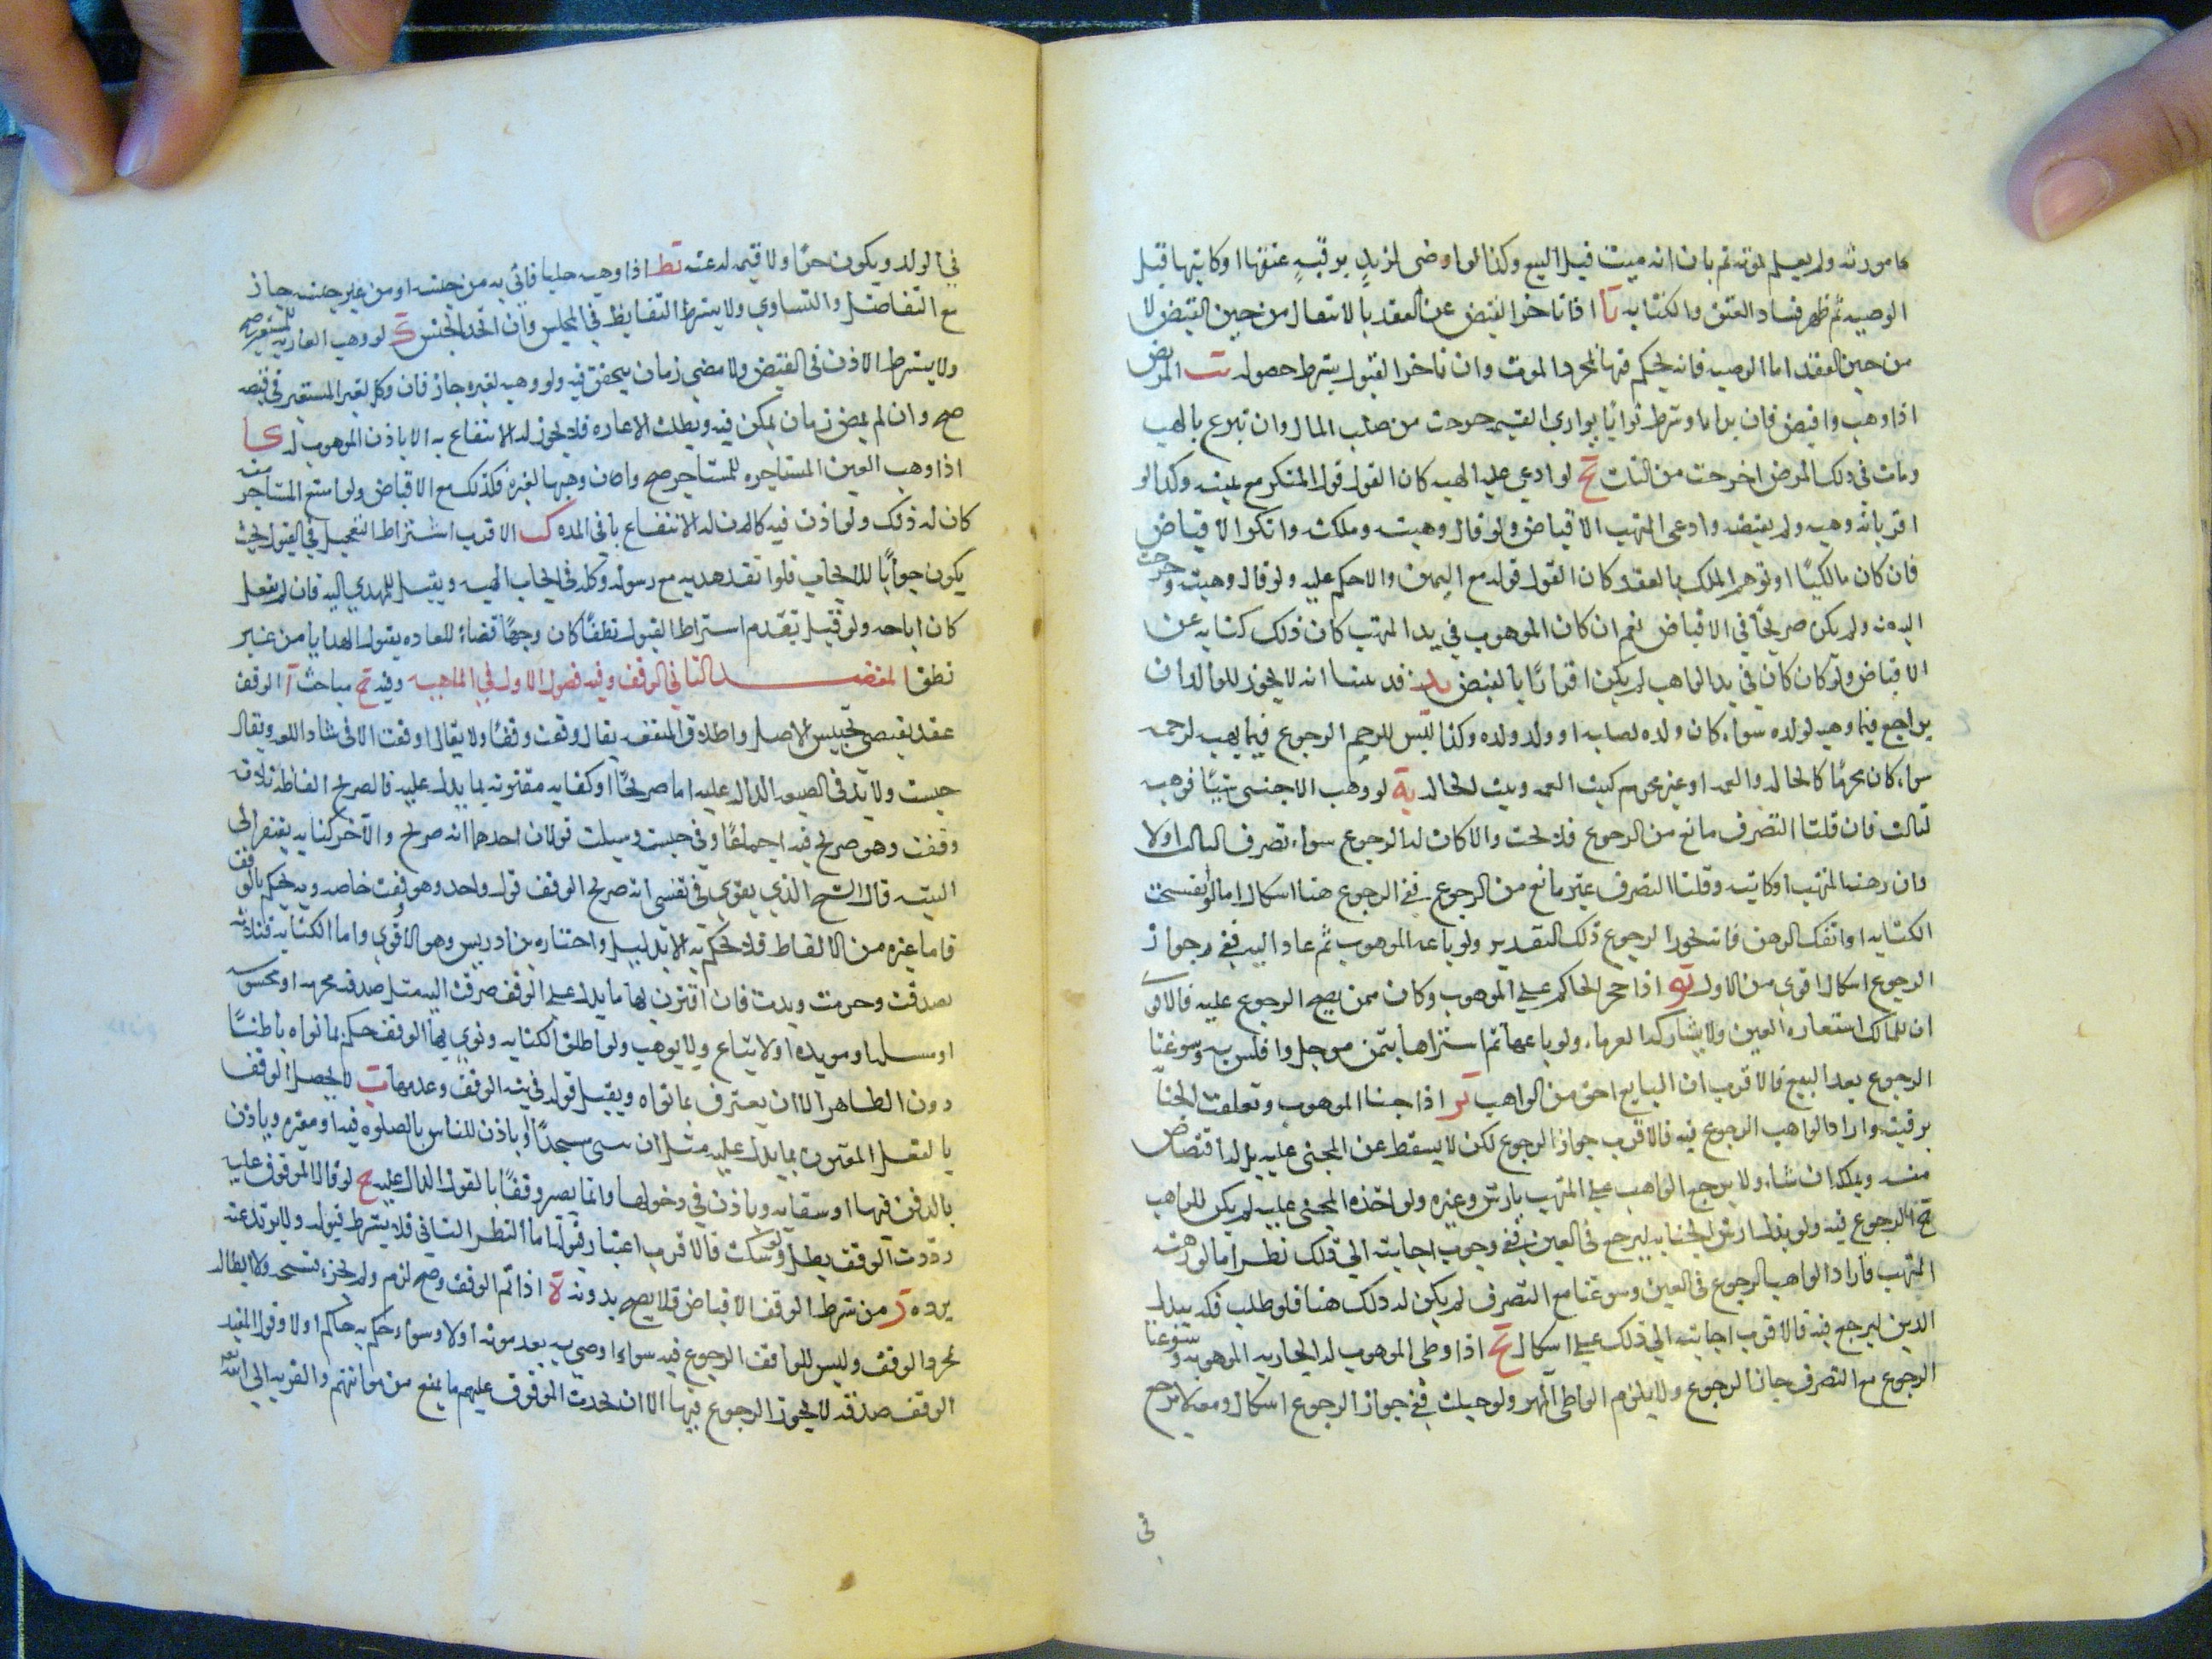 مال مورثه ولم يعلم بموته ثم بان انه ميت قبل البيع وكذا لو اوصى لزيد برقبة عتقها او كاتبها قبل
الوصيه ثم ظهر فساد العتق والكتابه يا اذا تاخر القبض عن العقد بالانتقال من حين القبض لا
من حين العقد اما الوصيه فانه يحكم فيها بمجرد الموت وان تاخر القبول يشترط حصوله يب المريض
اذا وهب واقبض فان برا او شرط ثوابا يوازي القيمه خرجت من صلب المال وان تبرع بالهبه
ومات في ذلك المرض اخرجت من الثلث يج لو ادعي عليه الهبه كان القول قول المنكر مع يمينه وكذا لو
اقر بانه وهبه ولم يقبضه وادعى المتهب الاقباض ولو قال وهبته وملكته وانكر الاقباض
فان كان مالكيا او توهم الملك بالعقد كان القول قوله مع اليمين والا حكم عليه ولو قال وهبته وخرجت
اليه منه ولم يكن صريحا في الاقباض نعم ان كان الموهوب في يد المتهب كان ذلك كنايه عن
الاقباض ولو كان كان في يد الواهب لم يكن اقرارا بالقبض يد قد بينا انه لا يجوز للوالد ان
يراجع فيما وهبه لولده سواء كان ولده لصلبه او ولد ولده وكذا ليس للرحم الرجوع فيما يهب لرحمه
سواء كان محرما كالخال والعم او غير محرم كبنت العم وبنت الخال يه لو وهب الاجنبي شيئا فوهبه
لثالث فان قلنا التصرف مانع من الرجوع فلا بحث والا كان له الرجوع سواء تصرف الثالث اولا
وان رهنه المتهب او كاتبه وقلنا التصرف غير مانع من الرجوع ففي الرجوع هنا اشكال اما لو انفسخت
الكتابه او انفك الرهن فانه يجوز الرجوع ذلك التقدير ولو باعه الموهوب ثم عاد اليه ففي جواز
الرجوع اشكال اقوى من الاول يو اذا حجر الحاكم على الموهوب وكان ممن يصح الرجوع عليه فالاقوى
ان للمالك استعاده العين ولا يشاركه الغرماء ولو باعها ثم اشتراها بثمن موجل وافلس به وسوغنا
الرجوع بعد البيع فالاقرب ان البايع احق من الواهب يز اذا جنا الموهوب وتعلقت الجنايه
برقبته واراد الواهب الرجوع فيه فالاقرب جواز الرجوع لكن لا يسقط عن المجنى عليه بل له اقتضاض
منه ويملكه ان شاء ولا يرجع الواهب على المتهب بارش وغيره ولو اخذه المجنى عليه لم يكن للواهب
الرجوع فيه ولو بذل ارش الجنايه ليرجع في العين ففي وجوب اجابته الى ذلك نظر اما لو رهنه
المتهب فاراد الواهب الرجوع في العين وسوغنا مع التصرف لم يكن له ذلك هنا فلو طلب فكه ببذل
الدين ليرجع فيه فالاقرب اجابته الى ذلك على اشكال يح اذا وطى الموهوب له الجاريه الموهوبه وسوغنا
الرجوع مع التصرف جاز الرجوع ولا يلزم الواطى المهر ولو حبلت ففي جواز الرجوع اشكال ومعه لا يرجع
في
في الولد ويكون حرا ولا قيمه له عنه يط اذا وهب حليا فاثيبه من جنسه او من غير جنسه جاز
مع التفاضل والتساوي ولا يشترط التقابظ في المجلس وان اتحد الجنس ك لو وهب العاريه للمستعير صح
ولا يشترط الاذن في القبض ولا مضي زمان يتحقق فيه ولو وهبه لغيره جاز فان وكل لغير المستعير في قبضه
صح وان لم يمض زمان يمكن فيه وبطلت الاعاره فلا يجوز له الانتفاع به الا باذن الموهوب له كا
اذا وهب العين المستاجره للمستاجر صح وان وهبها لغيره فكذلك مع الاقباض ولو امتنع المستاجر منه
كان له ذلك ولو اذن فيه كان له الانتفاع باقي المده كب الاقرب اشتراط التعجيل في القبول بحيث
يكون جوابا للايجاب فلو انفذ هديه مع رسوله وكله في ايجاب الهبه ويقبل المهدي اليه فان لم يفعل
كان اباحه ولو قيل بعدم اشتراط القبول نطقا كان وجها قضاء للعاده بقبول الهدايا من غير
نطق المقصد الثاني في الوقف وفيه فصول الاول في الماهيه وفيه ح مباحث آ الوقف
عقد يقتضي تحبيس الاصل واطلاق المنفعه يقال وقفت وقفا ولا يقال اوقفت الا في شاذ اللغه ويقال
حبست ولا بد في الصيغه الداله عليه اما صريحا او كنايه مقترنه بما يدل عليه فالصريح الفاظه ثلاث
وقفت وهو صريح فيه اجماعا وفي حبست وسبلت قولان احدهما انه صريح والآخر كنايه يفتقر الى
النيه قال الشيخ الذي يقوي في نفسي انه صريح الوقف قول واحد وهو وقفت خاصه وبه يحكم بالوقف
فاما غيره من الالفاظ فلا يحكم به الا بدليل واختاره بن ادريس وهو الاقوي واما الكنايه فثلاثه
تصدقت وحرمت وبدت فان اقترن بها ما يدل على الوقف صرفت اليه مثل صدقه محرمه او محبوسه
او مسبله او موبده او لا يباع ولا يوهب ولو اطلق الكنايه ونوى بها الوقف حكم بما نواه باطنا
دون الظاهر الا ان يعترف بما نواه ويقبل قوله في نيه الوقف وعدمها ب لا يحصل الوقف
بالفعل المقترن بما يدل عليه مثل ان يبنى مسجدا او ياذن للناس بالصلوه فيه او مقبره وياذن
بالدفن فيها او سقايه وياذن في دخولها وانما يصير وقفا بالقول الدال عليه ح لو قال الموقوف عليه
رددت الوقف بطل ولو سكت فالاقرب اعتبار قبوله اما النظر الثاني فلا يشترط قبوله ولا يرتد عنه
برده د من شرط الوقف الاقباض فلا يصح بدونه ه اذا تم الوقف وصح لزم ولم يجز فسخه ولا ابطاله
بحر والوقف وليس للواقف الرجوع فيه سواء اوصى به بعد موته اولا وسواء حكم به حاكم اولا وقول المفيد
الوقف صدقه لا يجوز الرجوع فيها الا ان يحدث الموقوف عليهم ما يمنع من معونتهم والقربه الى الله